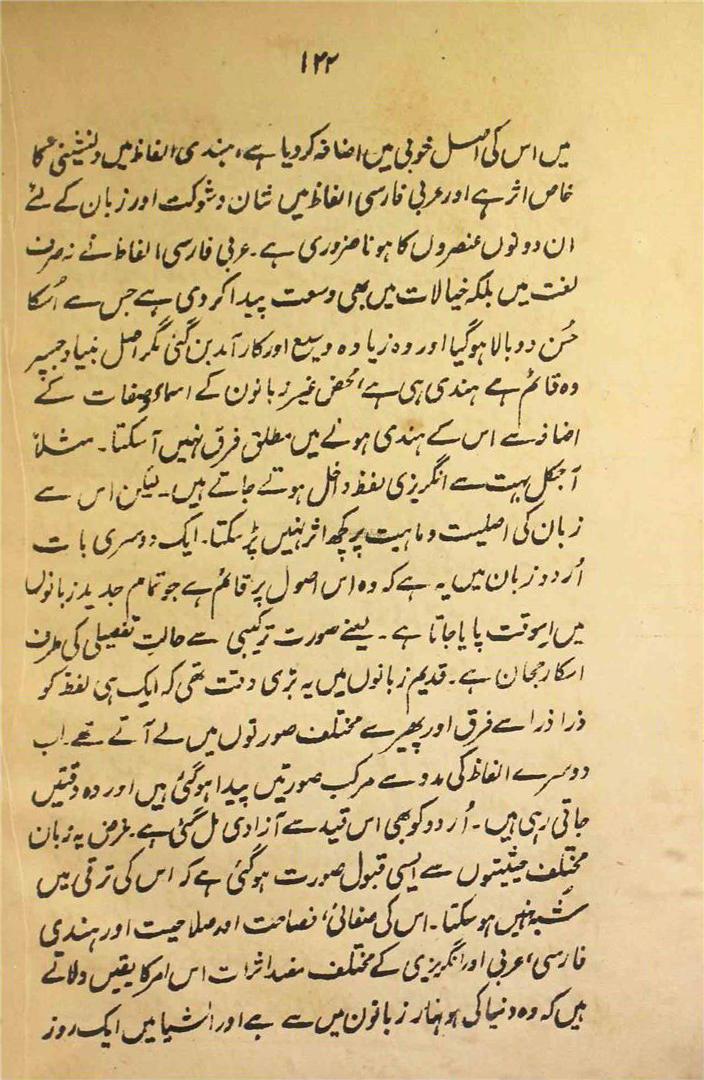 ۱۴۲
میں اس کی اصل خوبی میں اضافہ کر دیا ہے، ہندی الفاظ میں دلنشینی کا
خاص اثر ہے اور عربی فارسی الفاظ میں شان و شوکت اور زبان کے لئے
ان دونوں عنصروں کا ہونا ضروری ہے۔ عربی فارسی الفاظ نے نہ صرف
لغت میں بلکہ خیالات میں بھی وسعت پیدا کر دی ہے جس سے اُسکا
حُسن دوبالا ہو گیا اور وہ زیادہ وسیع اور کارآمد بن گئی مگر اصل بنیاد جسپر
وہ قائم ہے ہندی ہی ہے، محض غیر زبانون کے اسماء وصفات کے
اضافے اس کے ہندی ہونے میں مطلق فرق نہیں آسکتا۔ مثلاً
آجکل بہت سے انگریزی لفظ داخل ہوتے جاتے ہیں۔ لیکن اس سے
زبان کی اصلیت و ماہیت پر کچھ اثر نہیں پڑسکتا۔ ایک دوسری بات
اُردو زبان میں یہ ہے کہ وہ اس اصول پر قائم ہے جو تمام جدید زبانوں
میں اسوقت پایا جاتا ہے۔ یعنے صورت ترکیبی سے حالتِ تفصیلی کی طرف
اسکا رجحان ہے۔ قدیم زبانوں میں یہ بڑی دقت تھی کہ ایک ہی لفظ کو
ذرا ذرا سے فرق اور پھیر سے مختلف صورتوں میں لے آتے تھے۔ اب
دوسرے الفاظ کی مدد سے مرکب صورتیں پیدا ہو گئی ہیں اور وہ دقتیں
جاتی رہی ہیں۔ اُردو کو بھی اس قید سے آزادی مل گئی ہے۔ غرض یہ زبان
مختلف حیثیتوں سے ایسی قبول صورت ہو گئی ہے کہ اس کی ترقی میں
شبہ نہیں ہو سکتا۔ اس کی صفائی، فصاحت اور صلاحیت اور ہندی
فارسی، عربی اور انگریزی کے مختلف مفید اثرات اس امر کا یقین دلاتے
ہیں کہ وہ دنیا کی ہونہار زبانوں میں سے ہے اور ایشیا میں ایک روز